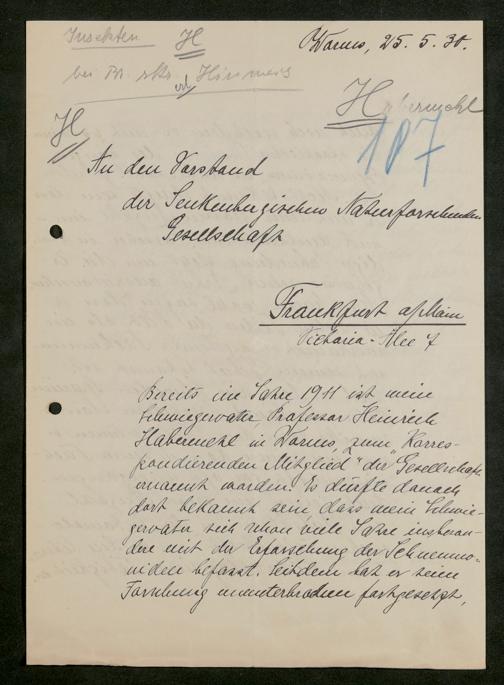 Insekten H
bei
Worms, 25. 5. 30.
H
Habermehl
107
H
An den Vorstand
der Senkenbergischen Naturforschenden
Gesellschaft
Frankfurt a/Main
Victoria-Alee 7
Bereits im Jahre 1911 ist mein
Schwiegervater, Professor Heinrich
Habermehl in Worms, zum „Korres-
pondierenden Mitglied" der Gesellschaft
ernannt worden. Es dürfte danach
dort bekannt sein, dass mein Schwie-
gervater sich schon viele Jahre insbeson-
dere mit der Erforschung der Ichneumo-
niden befasst. Seitdem hat er seine
Forschung ununterbrochen fortgesetzt,